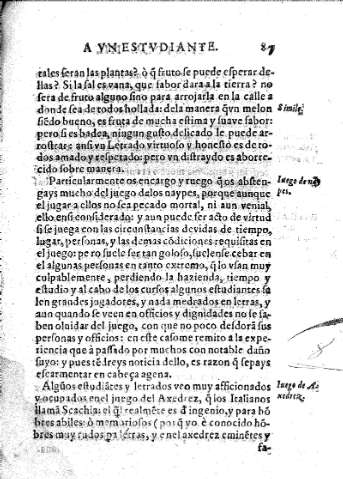 A VN ESTVDIANTE. 87
tales seran las plantas? ò q̃ fruto se puede esperar de-
llas? Si la sal es vana, que sabor dara a la tierra? no
sera de fruto alguno sino para arrojarla en la calle a
donde sea de todos hollada: dela manera qvn melon
siẽdo bueno, es fruta de mucha estima y suave sabor:
pero si es badea, ningun gusto delicado le puede ar-
rostrar: ansi vn Letrado virtuoso y honesto es de to-
dos amado y respetado: pero vn distraydo es aborre-
cido sobre manera.
Simile.
Particularmente os encargo y ruego q̃ os absten-
gays mucho del juego delos naypes, porque aunque
el jugar a ellos no sea pecado mortal, ni aun venial,
ello en si considerado: y aun puede ser acto de virtud
si se juega con las circunstancias devidas de tiempo,
lugar, personas, y las demas cõdiciones requisitas en
el juego: pero suele ser tan goloso, suelense cebar en
el algunas personas en tanto extremo, q̃ lo vsan muy
culpablemente, perdiendo la hazienda, tiempo y
estudio y al cabo de los cursos algunos estudiantes sa
len grandes jogadores, y nada medrados en letras, y
aun quando se veen en officios y dignidades no se sa-
ben olvidar del juego, con que no poco desdorã sus
personas y officios: en este caso me remito a la expe-
riencia que à passado por muchos con notable daño
suyo: y pues tẽdreys noticia dello, es razon q̃ sepays
escarmentar en cabeça agena.
Iuego de nay
pes.
Algũos estudiãtes y letrados veo muy afficionados
y ocupados en el juego del Axedrez, q̃ los Italianos
llamã Scachia: el q̃l realmẽte es d̃ ingenio, y para hõ
bres abiles: ò memoriosos (por q̃ yo è conocido hõ-
bres muy rudos pa letras, y en el axedrez eminẽtes y
Iuego de A-
xedrez.
fa-